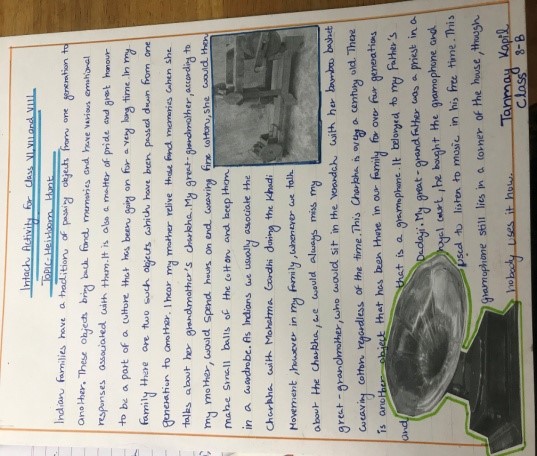 Intach Activity for Class VI, VII and VIII
Topic - Heirloom Hunt
Indian families have a tradition of passing objects from one generation to
another. These objects bring back fond memories and have various emotional
responses associated with them. It is also a matter of pride and great honour
to be a part of a culture that has been going on for a very long time. In my
family there are two such objects which have been passed down from one
generation to another. I hear my mother relive those fond memories when she
talks about her grandmother's charkha. My great-grandmother, according to
my mother, would spend hours on end weaving fine cotton, she would then
make small balls of the cotton and keep them
in a wardrobe. As Indians we usually associate the
Charkha with Mahatma Gandhi during the Khadi
Movement, however in my family, whenever we talk
about the Charkha, we would always miss my
great-grandmother, who would sit in the verandah with her bamboo basket
weaving cotton regardless of the time. This Charkha is over a century old. There
is another object that has been there in our family for over four generations
and that is a gramophone. It belonged to my father's
Dadaji. My great-grandfather was a priest in a
royal court, he bought the gramophone and
used to listen to music in his free time. This
gramophone still lies in a corner of the house, though
nobody uses it now.
Tanmay Kapil
Class 8-B